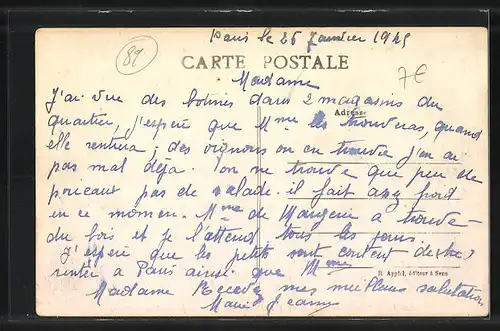 Paris le 25 Janvier 1945
89
CARTE POSTALE
7€
Madame
J'ai vue des botines dans 2 magasins du
Adresse
quartier, j'espère que Mme les trouveras, quand
elle rentrera ; des oignons on en trouve j'en ai
pas mal déja. on ne trouve que peu de
poireaux pas de salade. il fait assez froid
en ce momen. Mme de Maugerie a trouvé
du bois et je l'attend tous les jours.
J'espère que les petits sont content
rentré a Paris ainsi que Mme
D. Apphé, éditeur à Sens
Madame Recevez mes meilleurs salutation
Marie Jeanne